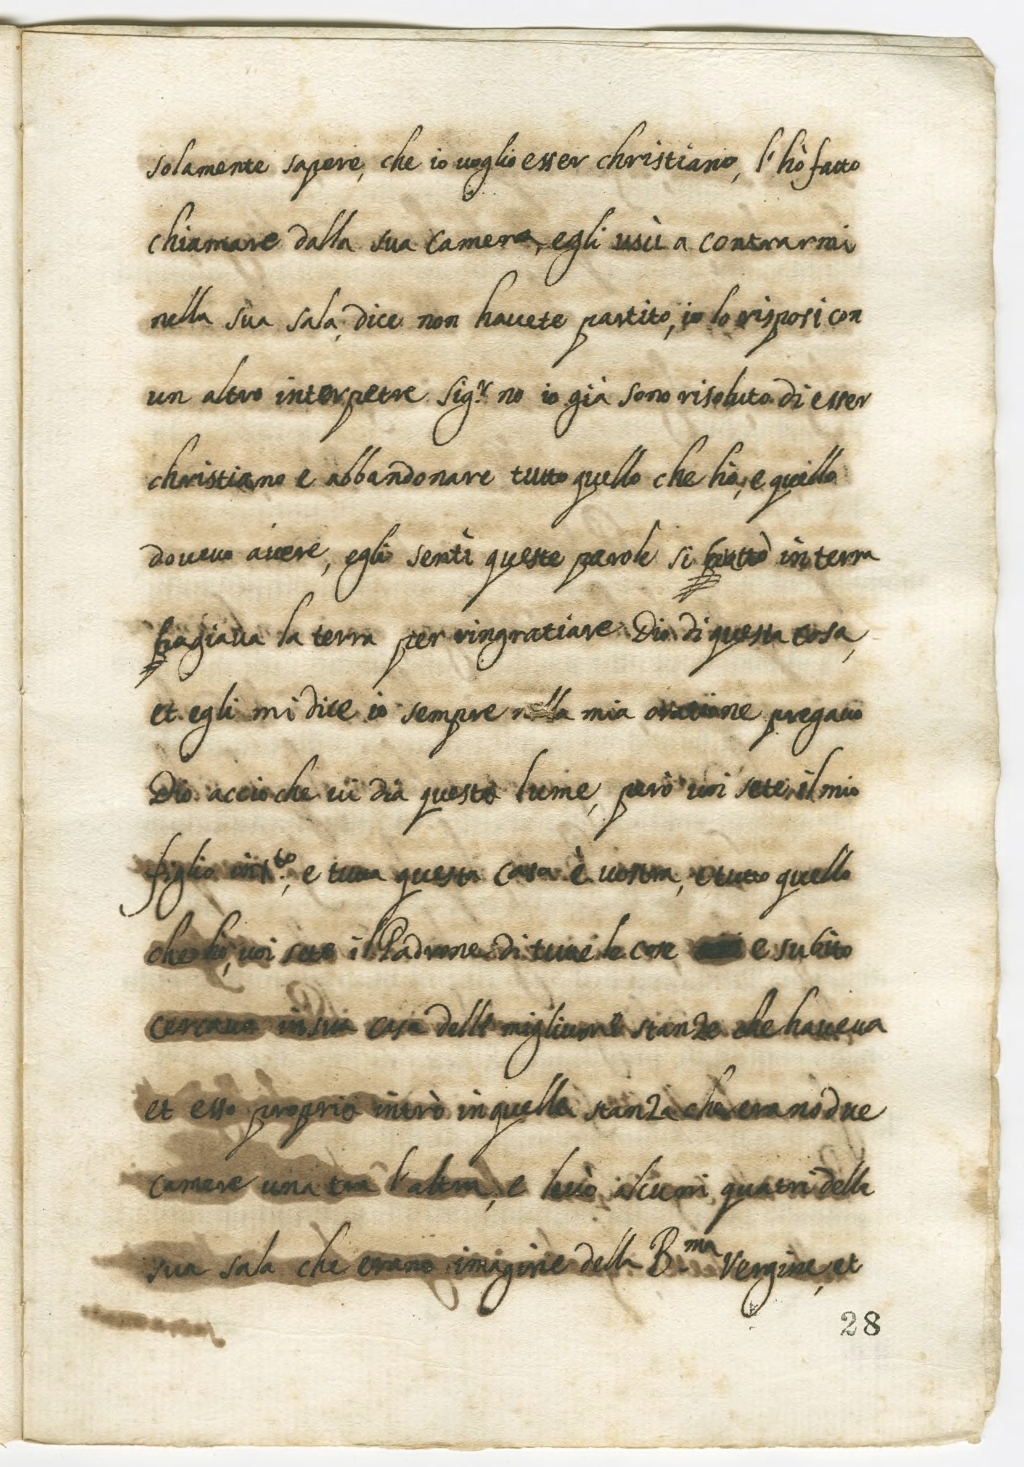 solamente sapere, che io voglio esser christiano, l'hò fatto
chiamare dalla sua camera, egli usìi a contrarmi
nella sua sala, dice non havete partito, io lo risposi con
un altro interpetre Sig.r no io già sono risoluto di esser
christiano e abbandonare tutto quello che hò, e quello
dovevo avere, egli sentì queste parole si buttò in terra
bagiava la terra per ringratiare Dio di questa cosa,
et egli mi dice io sempre nella mia oratione pregavo
Dio acciò che vi dia questo lume, però voi sete il mio
figlio, e tutta questa casa è vostra, e tutto quello
che hò, voi sete il Padrone di tutte le cose e subito
cercava in sua casa delle migliore stanze che haveva
et esso proprio intrò in quella stanza che erano due
camere una tra l'altra, e levò alcuni quatri della
sua sala che erano imagine della B.ma Vergine, et
28